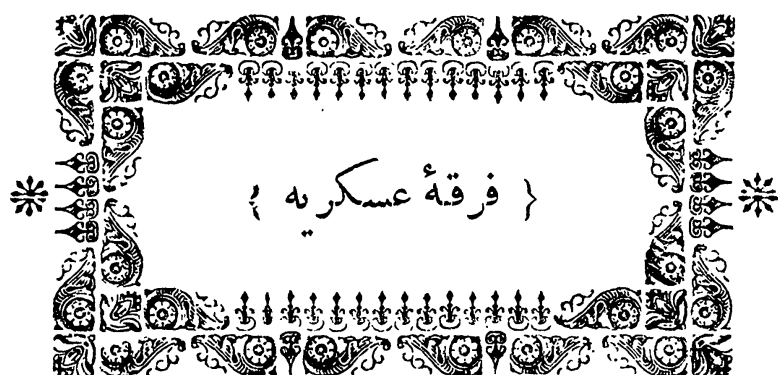 { فرقهٔ عسكریه }